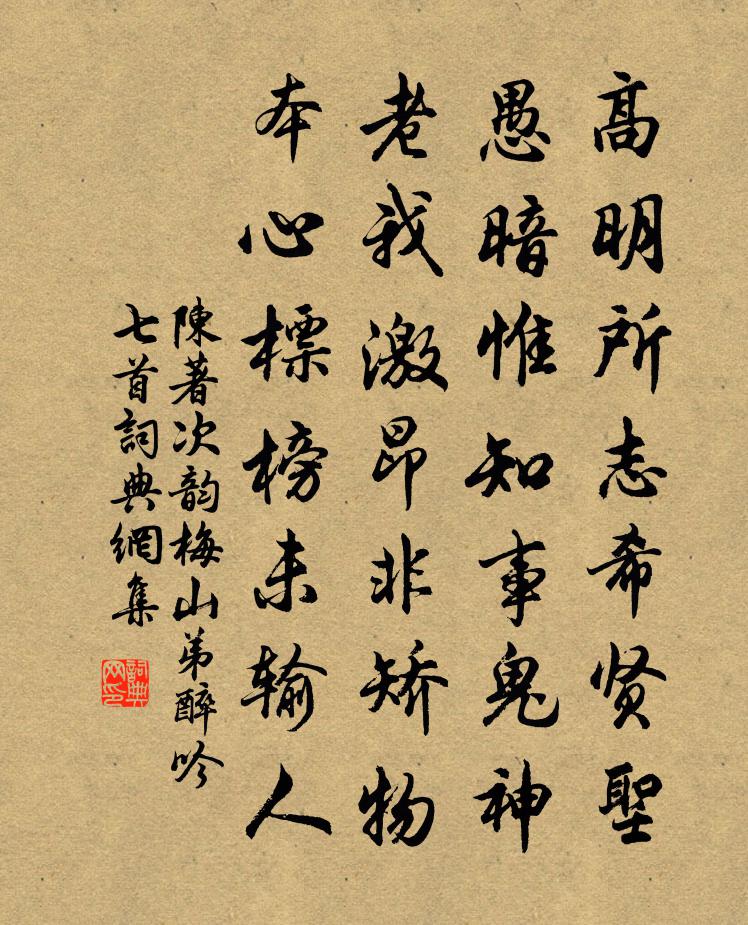 高明所志希贤聖
愚暗惟知事鬼神
老我激昂非矯物
本心標榜未输人
陳著次韵梅山弟醉吟
七首詞典網集
詞典网印